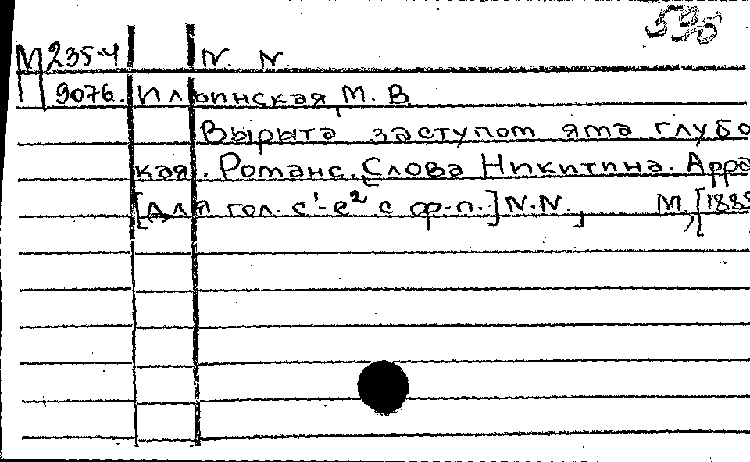 595
М 235-4 N. N
П 9076. Ильинская, М. В
Вырыта заступом яма глубо
кая. Романс. Слова Никитина. Арра
[Для гол. с¹-е² с ф-п.] N.N., М, [1885